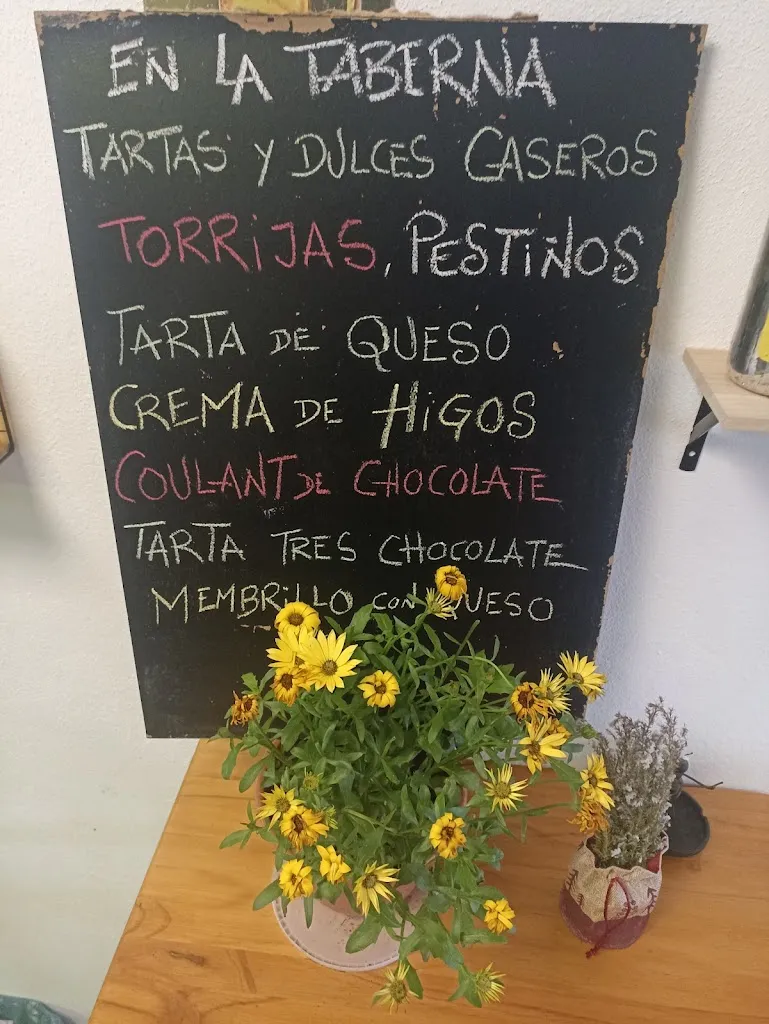 EN LA TABERNA
TARTAS Y DULCES CASEROS
TORRIJAS, PESTIÑOS
TARTA DE QUESO
CREMA DE HIGOS
COULANT DE CHOCOLATE
TARTA TRES CHOCOLATE
MEMBRILLO CON QUESO